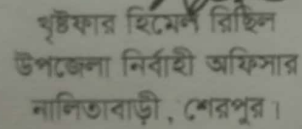 খৃষ্টফার হিমেল রিছিল
উপজেলা নির্বাহী অফিসার
নালিতাবাড়ী, শেরপুর।